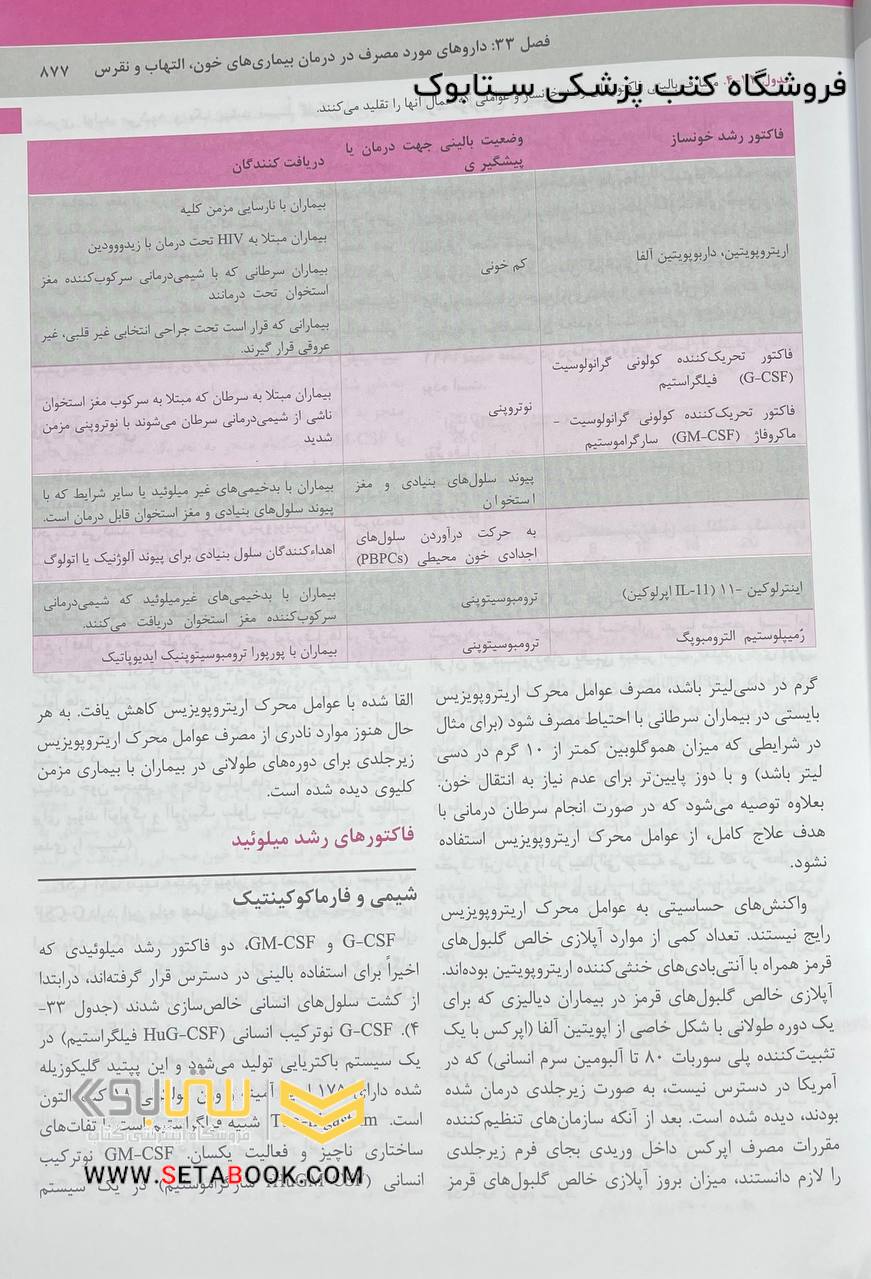 فصل ۳۳: داروهای مورد مصرف در درمان بیماری‌های خون، التهاب و نقرس ۸۷۷
فروشگاه کتب پزشکی ستابوک
آنها را تقلید می‌کنند.
فاکتور رشد خونساز
وضعیت بالینی جهت درمان یا
پیشگیر ی
دریافت کنندگان
اریتروپویتین، داربوپویتین آلفا
کم خونی
بیماران با نارسایی مزمن کلیه
بیماران مبتلا به HIV تحت درمان با زیدووودین
بیماران سرطانی که با شیمی‌درمانی سرکوب‌کننده مغز
استخوان تحت درمانند
بیمارانی که قرار است تحت جراحی انتخابی غیر قلبی، غیر
عروقی قرار گیرند.
فاکتور تحریک‌کننده کولونی گرانولوسیت
(G-CSF) فیلگراستیم
فاکتور تحریک‌کننده کولونی گرانولوسیت -
ماکروفاژ (GM-CSF) سارگراموستیم
نوتروپنی
بیماران مبتلا به سرطان که مبتلا به سرکوب مغز استخوان
ناشی از شیمی‌درمانی سرطان می‌شوند با نوتروپنی مزمن
شدید
پیوند سلول‌های بنیادی و مغز
استخوان
بیماران با بدخیمی‌های غیر میلوئید یا سایر شرایط که با
پیوند سلول‌های بنیادی و مغز استخوان قابل درمان است.
به حرکت درآوردن سلول‌های
اجدادی خون محیطی (PBPCs)
اهداءکنندگان سلول بنیادی برای پیوند آلوژنیک یا اتولوگ
اینترلوکین -۱۱ (IL-11 اپرلوکین)
ترومبوسیتوپنی
بیماران با بدخیمی‌های غیرمیلوئید که شیمی‌درمانی
سرکوب‌کننده مغز استخوان دریافت می‌کنند.
رُمیپلوستیم الترومبوپگ
ترومبوسیتوپنی
بیماران با پورپورا ترومبوسیتوپنیک ایدیوپاتیک
گرم در دسی‌لیتر باشد، مصرف عوامل محرک اریتروپویزیس
بایستی در بیماران سرطانی با احتیاط مصرف شود (برای مثال
در شرایطی که میزان هموگلوبین کمتر از ۱۰ گرم در دسی
لیتر باشد) و با دوز پایین‌تر برای عدم نیاز به انتقال خون.
بعلاوه توصیه می‌شود که در صورت انجام سرطان درمانی با
هدف علاج کامل، از عوامل محرک اریتروپویزیس استفاده
نشود.
واکنش‌های حساسیتی به عوامل محرک اریتروپویزیس
رایج نیستند. تعداد کمی از موارد آپلازی خالص گلبول‌های
قرمز همراه با آنتی‌بادی‌های خنثی‌کننده اریتروپویتین بوده‌اند.
آپلازی خالص گلبول‌های قرمز در بیماران دیالیزی که برای
یک دوره طولانی با شکل خاصی از اپویتین آلفا (اپرکس با یک
تثبیت‌کننده پلی سوربات ۸۰ تا آلبومین سرم انسانی) که در
آمریکا در دسترس نیست، به صورت زیرجلدی درمان شده
بودند، دیده شده است. بعد از آنکه سازمان‌های تنظیم‌کننده
مقررات مصرف اپرکس داخل وریدی بجای فرم زیرجلدی
را لازم دانستند، میزان بروز آپلازی خالص گلبول‌های قرمز
القا شده با عوامل محرک اریتروپویزیس کاهش یافت. به هر
حال هنوز موارد نادری از مصرف عوامل محرک اریتروپویزیس
زیرجلدی برای دوره‌های طولانی در بیماران با بیماری مزمن
کلیوی دیده شده است.
فاکتورهای رشد میلوئید
شیمی و فارماکوکینتیک
G-CSF و GM-CSF، دو فاکتور رشد میلوئیدی که
اخیراً برای استفاده بالینی در دسترس قرار گرفته‌اند، درابتدا
از کشت سلول‌های انسانی خالص‌سازی شدند (جدول ۳۳-
۴). G-CSF نوترکیب انسانی (HuG-CSF فیلگراستیم) در
یک سیستم باکتریایی تولید می‌شود و این پپتید گلیکوزیله
شده دارای ۱۷۵
است. شبیه فیلگراستیم است
ساختاری ناچیز و فعالیت یکسان. GM-CSF نوترکیب
انسانی در یک سیستم
ستابوک
فروشگاه اینترنتی کتاب
WWW.SETABOOK.COM